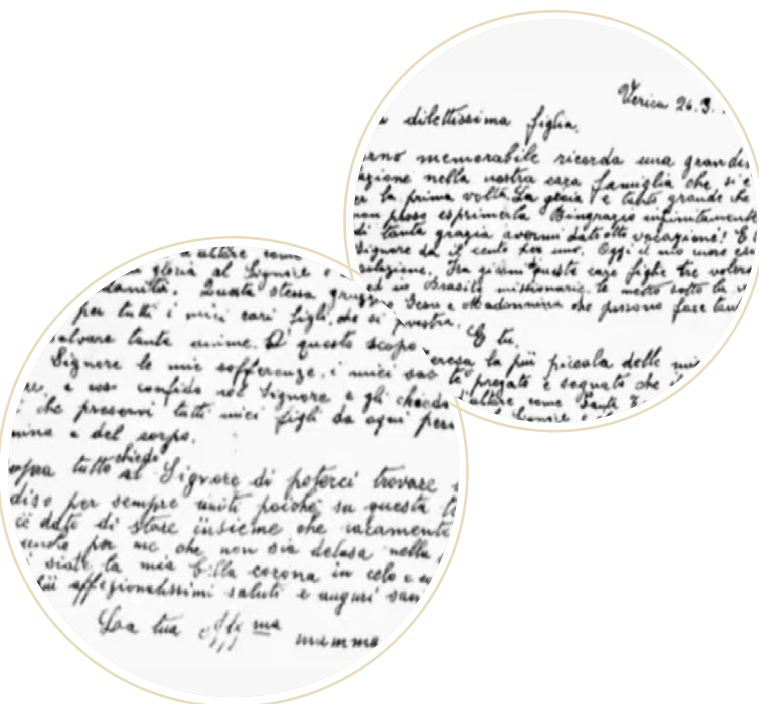 Verica 26.3.
dilettissima figlia,
memorabile ricorda una grande
nella nostra cara famiglia che si è
la prima volta. La gioia è tanto grande che
non posso esprimerla Ringrazio infinitamente
di tanta grazia avermi dato otto vocazioni! E
Signore da il cento per uno. Oggi il mio cuore
Fra giorni queste care figlie tre
ed in Brasile missionarie le metto sotto la
Gesu e Madonnina che possono fare
E tu,
la più piccola delle
pregato e sognato che
altare come Santa
altare come
gloria al Signore e
Questa stessa
per tutti i miei cari figli, che si
salvare tante anime. A questo scopo
Signore le mie sofferenze, i miei
e così confido nel Signore e gli chiedo
che preservi tutti miei figli da ogni
e del corpo.
tutto chiedo al Signore di poterci trovare
per sempre uniti poiché su questa
dato di stare insieme che raramente
anche per me che non sia delusa nella
siate la mia bella corona in celo e
affezionatissimi saluti e auguri
La tua aff.ma mamma